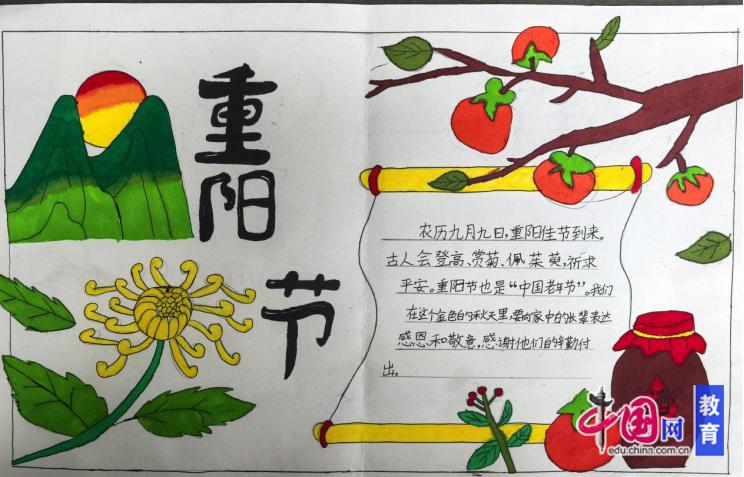 重
阳
节
农历九月九日，重阳佳节到来。
古人会登高、赏菊、佩茱萸，祈求
平安。重阳节也是“中国老年节”。我们
在这个金色的秋天里，要向家中的长辈表达
感恩和敬意，感谢他们的辛勤付
出。
酒
中国网
教育
edu.china.com.cn